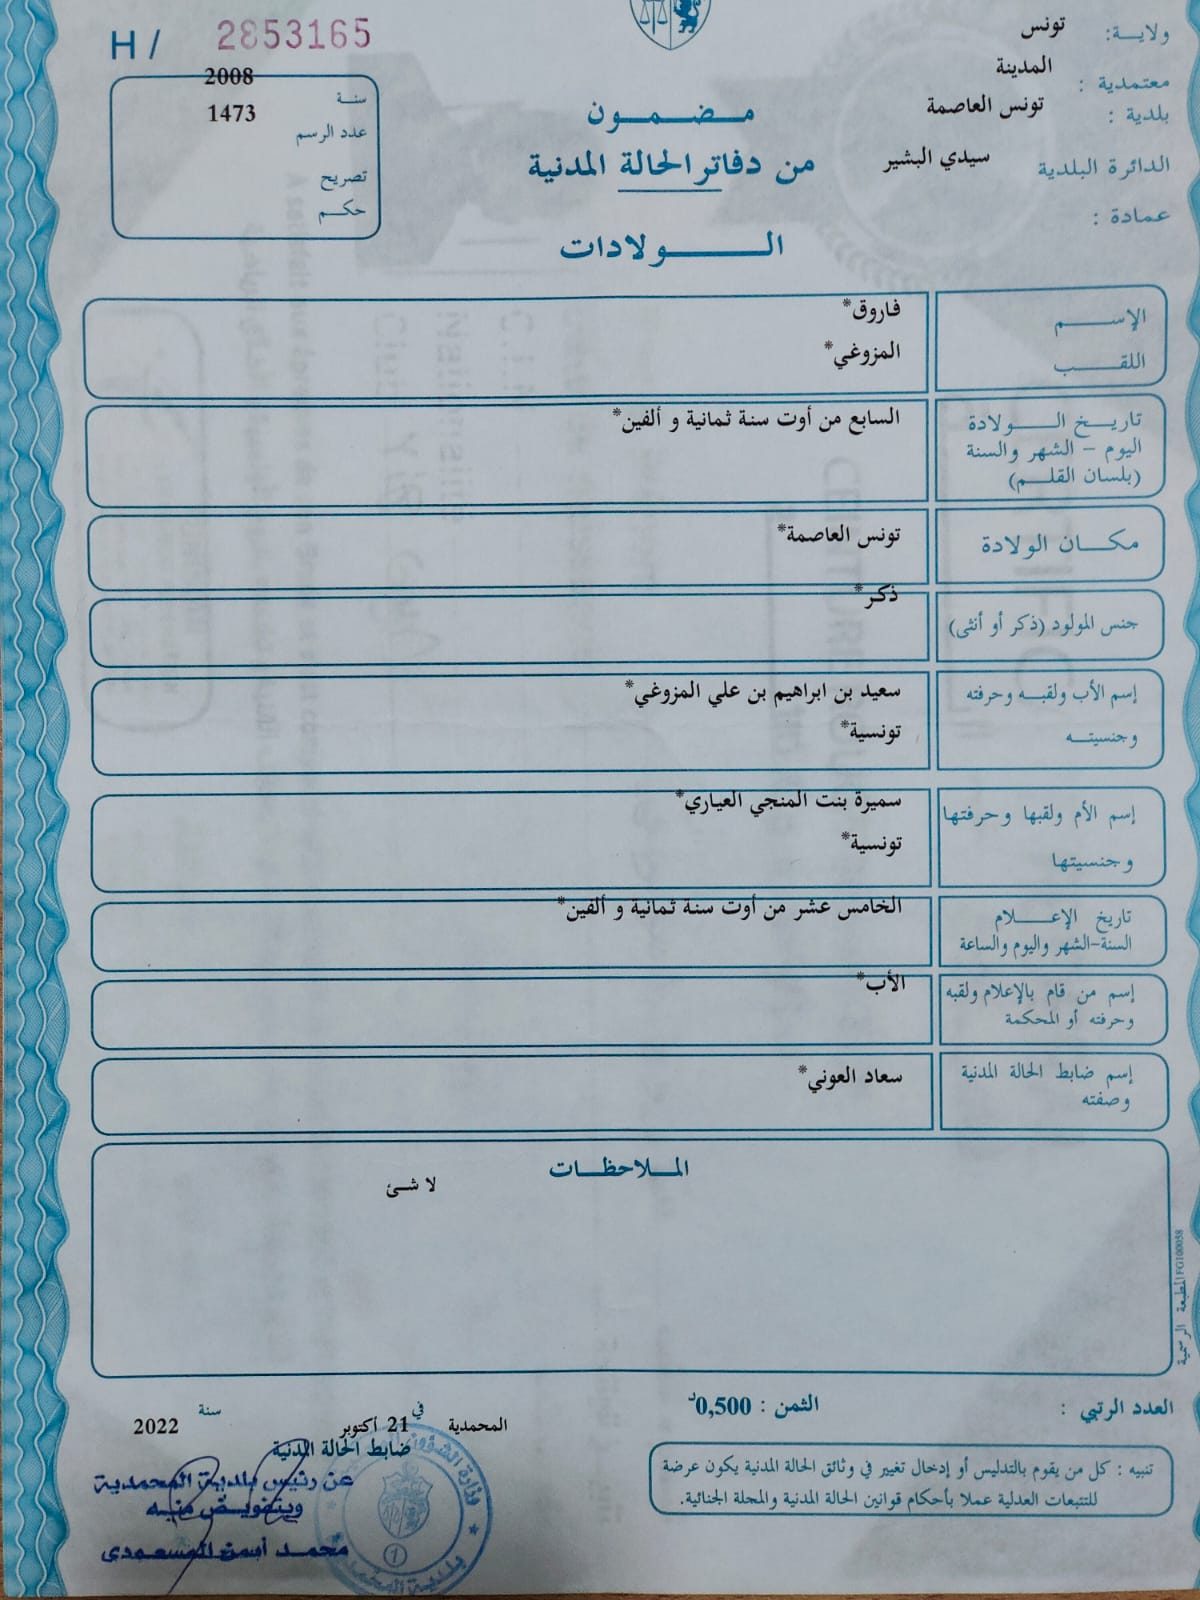 H / 2853165
سنة 2008
عدد الرسم 1473
تصريح
حكم
ولاية: تونس
معتمدية : المدينة
بلدية : تونس العاصمة
الدائرة البلدية سيدي البشير
عمادة :
مضمون
من دفاتر الحالة المدنية
الولادات
الإسم فاروق*
اللقب المزوغي*
تاريخ الولادة
اليوم - الشهر والسنة
(بلسان القلم)
السابع من أوت سنة ثمانية و ألفين*
مكان الولادة تونس العاصمة*
جنس المولود (ذكر أو أنثى) ذكر*
إسم الأب ولقبه وحرفته
وجنسيته
سعيد بن ابراهيم بن علي المزوغي*
تونسية*
إسم الأم ولقبها وحرفتها
وجنسيتها
سميرة بنت المنجي العياري*
تونسية*
تاريخ الإعلام
السنة-الشهر واليوم والساعة
الخامس عشر من أوت سنة ثمانية و ألفين*
إسم من قام بالإعلام ولقبه
وحرفته أو المحكمة
الأب*
إسم ضابط الحالة المدنية
وصفته
سعاد العوني*
الملاحظات
لا شئ
المطبعة الرسمية FG100058
العدد الرتبي :
الثمن : 0,500د
المحمدية في 21 أكتوبر سنة 2022
ضابط الحالة المدنية
عن رئيس بلدية المحمدية
وبتفويض منه
محمد أيمن المسعودي
تنبيه : كل من يقوم بالتدليس أو إدخال تغيير في وثائق الحالة المدنية يكون عرضة
للتتبعات العدلية عملا بأحكام قوانين الحالة المدنية والمجلة الجنائية.